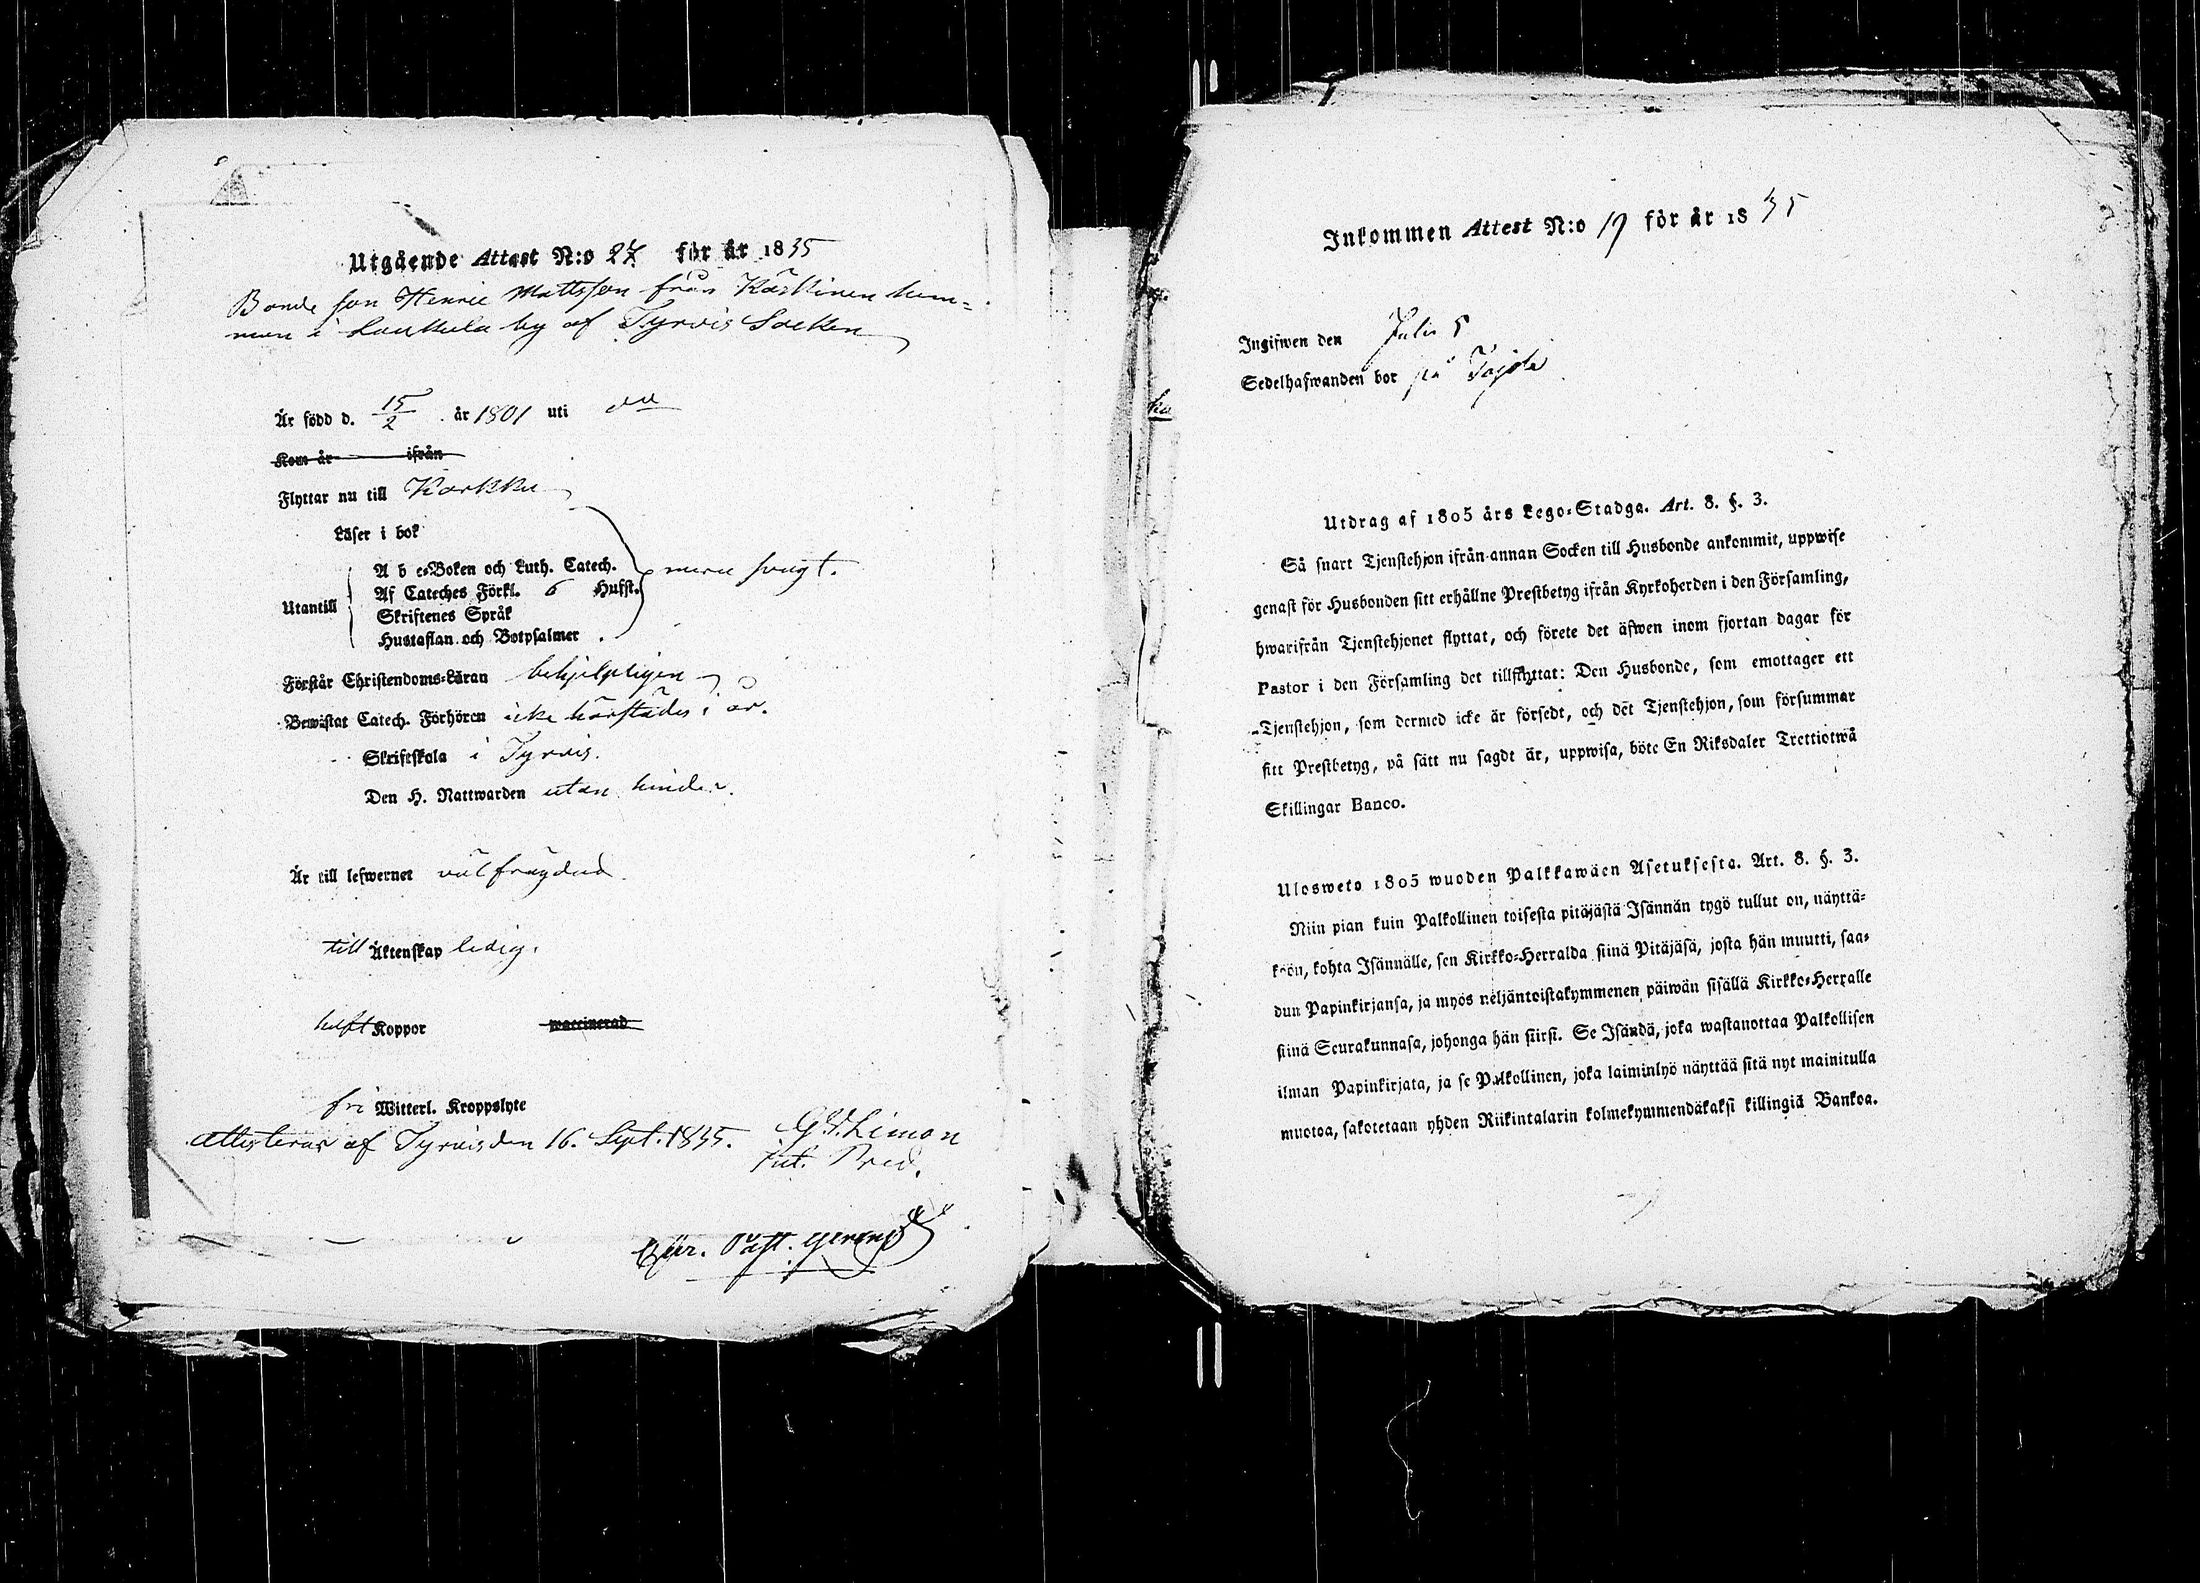 Utgående Attest N:o för år 1835
Bonde son Henric Mattsson från Kärkinen hem=
man i Laukula by af Tyrvis Socken
Är född d. 15/2 år 1801 uti
Kom år ifrån
Flyttar nu till Karkku
Läser i bok
A b c=Boken och Luth. Catech.
Af Cateches Förkl. 6 Hufst.
svagt.
Utantill
Skriftenes Språk
Hustaflan och Botpsalmer
Förstår Christendoms=Läran behjelpligen
Bewistat Catech. Förhören icke härstädes i år.
Skriftskola i Tyrvis.
Den H. Nattwarden utan hinder.
Är till lefwernet välfrägdad.
till Äktenskap ledig.
haft Koppor waccinerad
fri Witterl. Kroppslyte
Attesteras af Tyrvis den 16. Sept. 1835. Limon
Past.
Inkommen Attest N:o för år 1835
Ingifwen den
Sedelhafwanden bor på
Utdrag af 1805 års Lego=Stadga. Art. 8. §. 3.
Så snart Tjenstehjon ifrån annan Socken till Husbonde ankommit, uppwise
genast för Husbonden sitt erhållne Prestbetyg ifrån Kyrkoherden i den Församling,
hwarifrån Tjenstehjonet flyttat, och förete det äfwen inom fjortan dagar för
Pastor i den Församling det tillflyttat: Den Husbonde, som emottager ett
Tjenstehjon, som dermed icke är försedt, och det Tjenstehjon, som försummar
sitt Prestbetyg, på sätt nu sagdt är, uppwisa, böte En Riksdaler Trettiotwå
Skillingar Banco.
Ulosweto 1805 wuoden Palkkawäen Asetuksesta. Art. 8. §. 3.
Niin pian kuin Palkollinen toisesta pitäjästä Isännän tygö tullut on, näyttä=
köön, kohta Isännälle, sen Kirkko=Herralda siinä Pitäjäsä, josta hän muutti, saa=
dun Papinkirjansa, ja myös neljäntoistakymmenen päiwän sisällä Kirkko=Herralle
siinä Seurakunnasa, johonga hän siirsi. Se Isändä, joka wastanottaa Palkollisen
ilman Papinkirjata, ja se Palkollinen, joka laiminlyö näyttää sitä nyt mainitulla
muotoa, sakotetaan yhden Riikintalarin kolmekymmendäkaksi killingiä Bankoa.